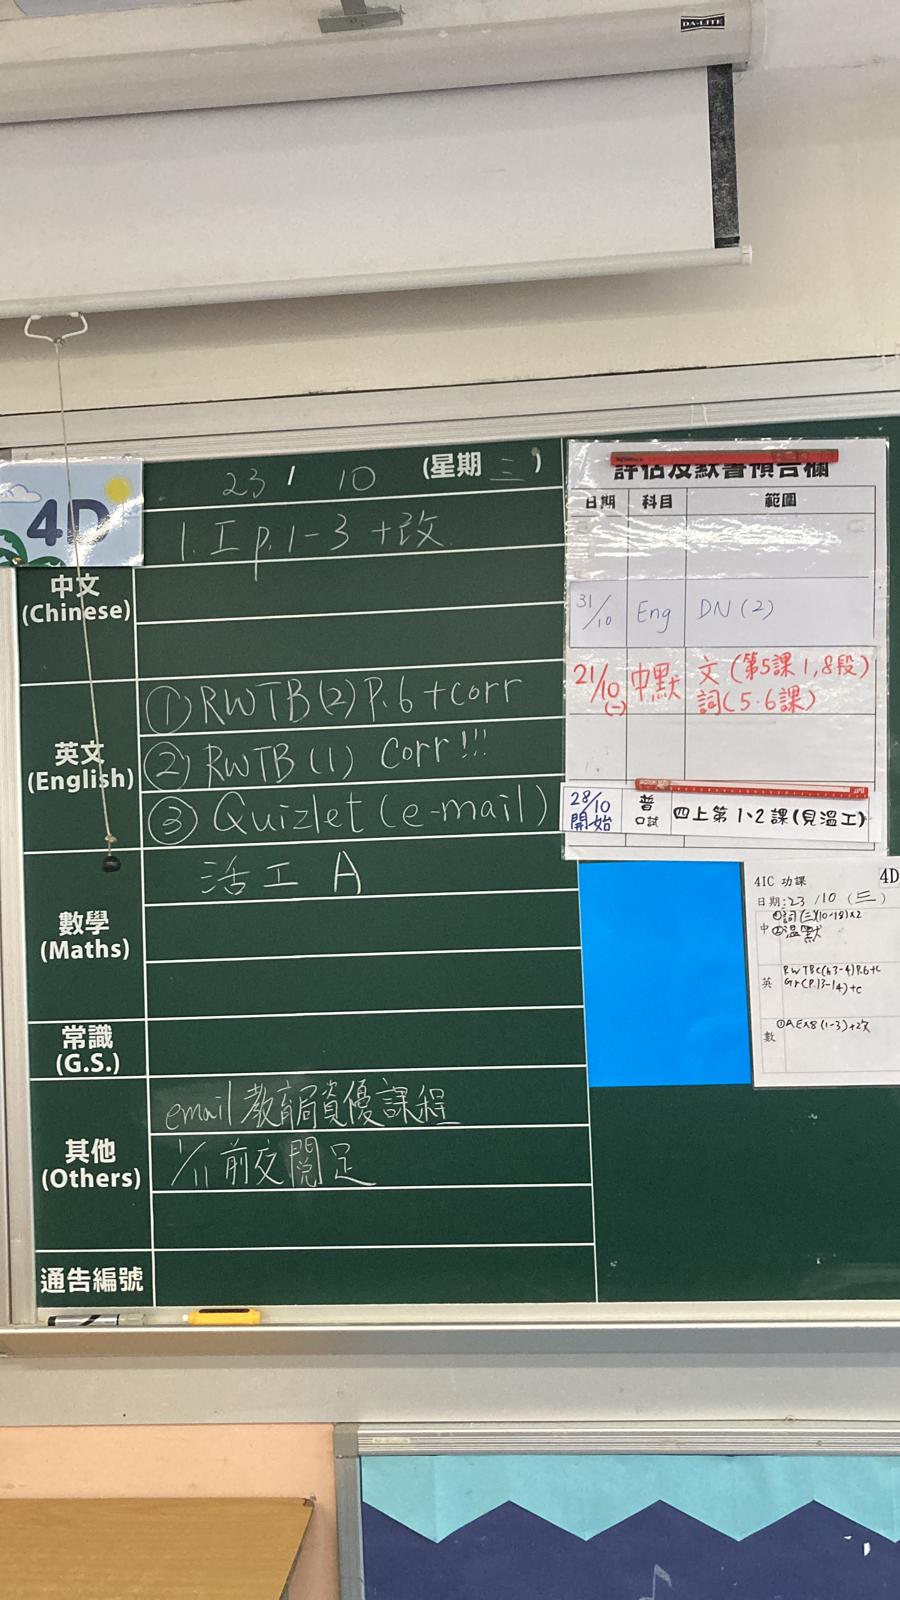 DA-LITE
4D
23 / 10 (星期三)
1. 工 p.1-3 +改
中文
(Chinese)
英文
(English)
① RWTB(2) P.6 + corr
② RWTB(1) Corr!!!
③ Quizlet (e-mail)
數學
(Maths)
活工 A
常識
(G.S.)
其他
(Others)
email 教育局資優課程
1/11 前交閱足
通告編號
評估及默書預告欄
日期 科目 範圍
31/10 Eng DN (2)
21/10 (一) 中默 文 (第5課 1, 8段)
詞 (5.6課)
28/10 開始 普 口試 四上第1、2課(見溫工)
4IC 功課 4D
日期: 23 /10 (三)
中 ①詞(三)(10-18)x2
②溫默
英 RWTBC(h3-4) P.6+c
Gr(P.13-14)+c
數 ①A.Ex8 (1-3)+改